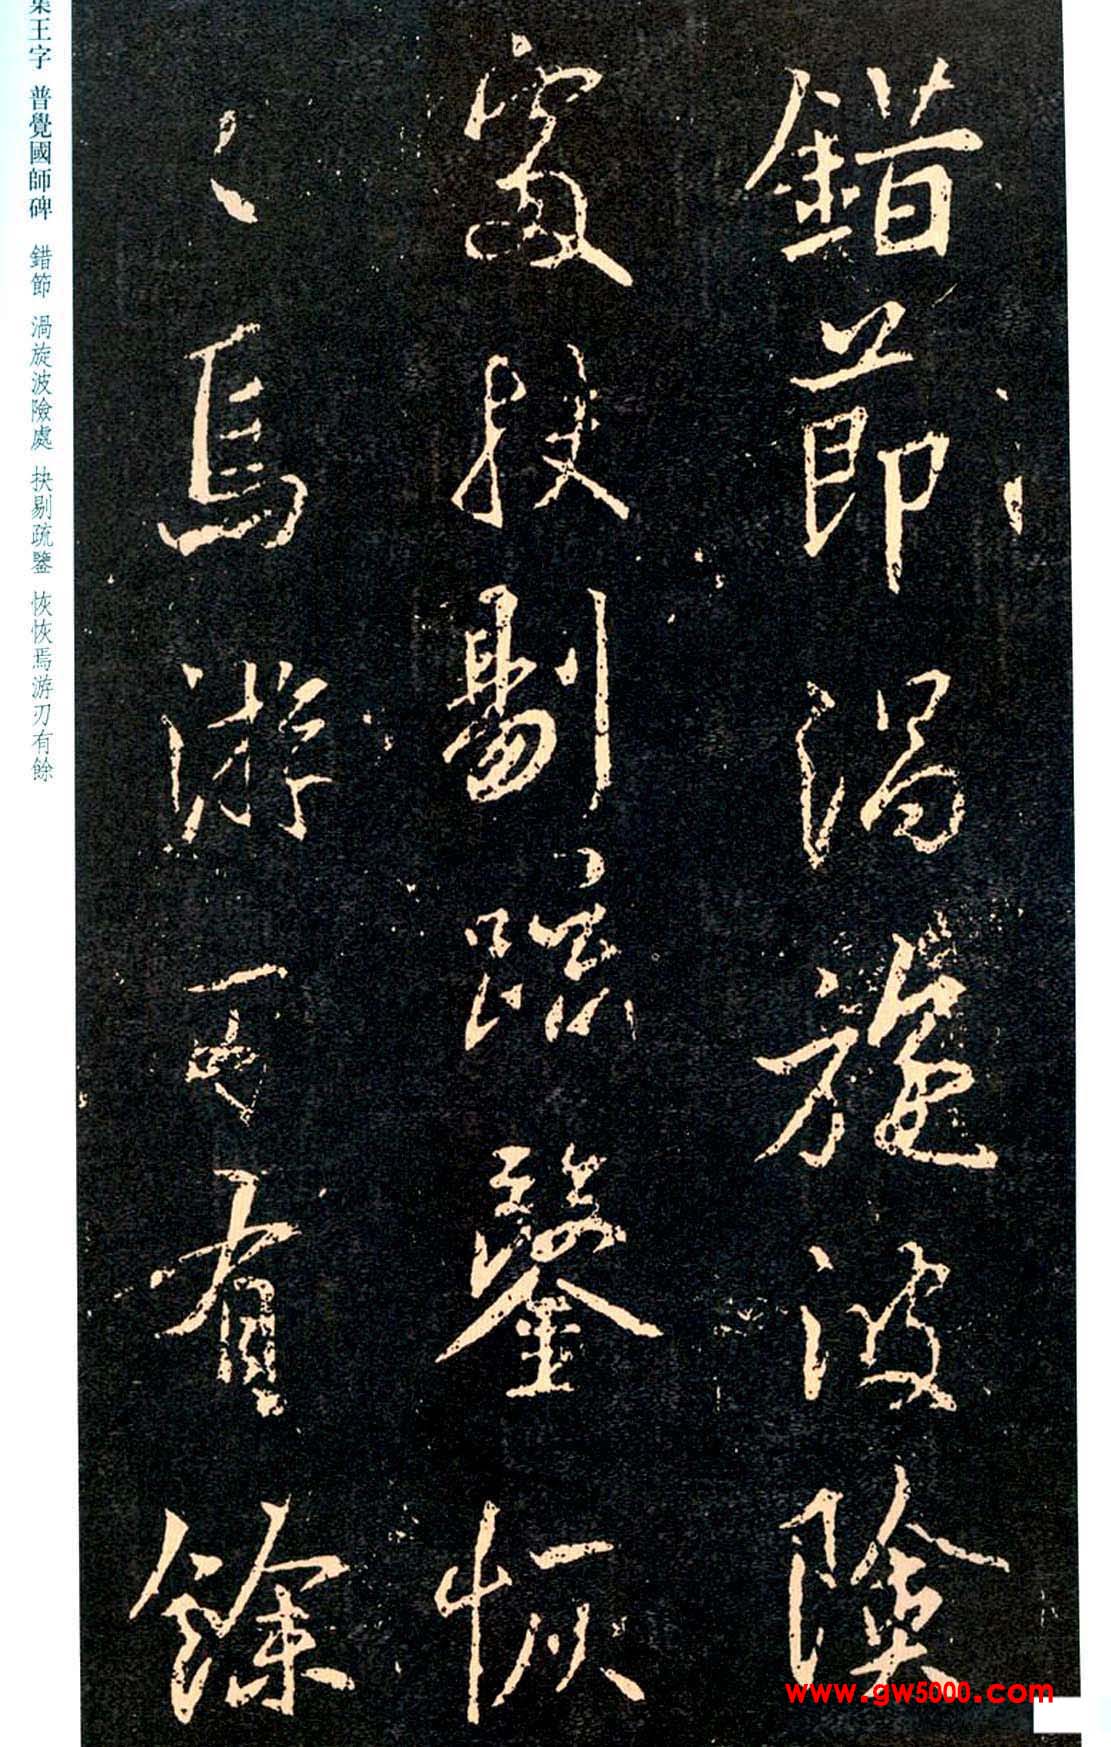 錯節渦旋波險
處抉剔疏鑒恢
〻焉游刃有餘
集王字 普覺國師碑 錯節 渦旋波險處 抉剔疏鑒 恢恢焉游刃有餘
www.gw5000.com